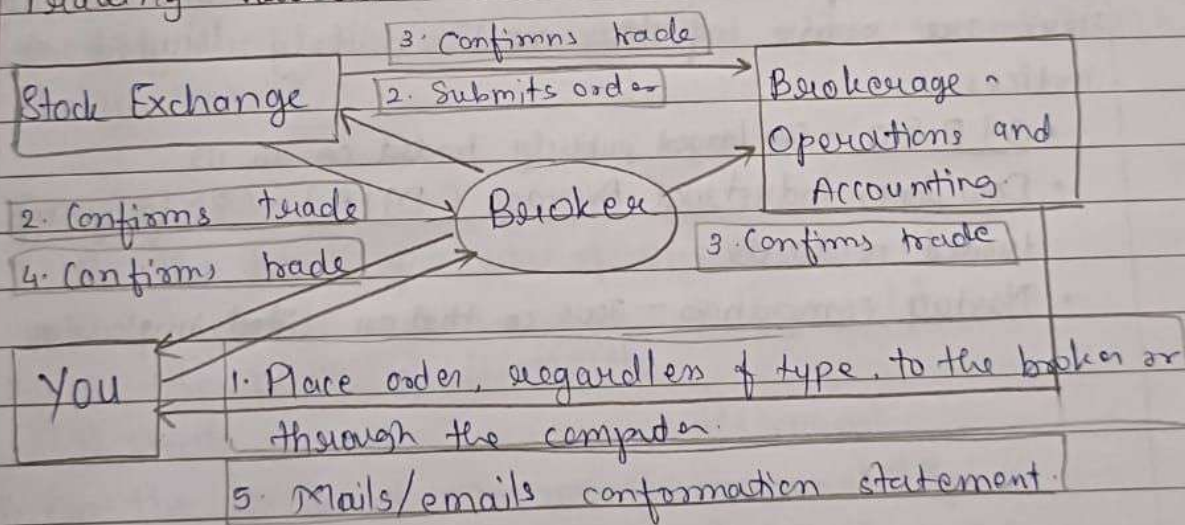 3. Confimns trade
Stock Exchange
2. Submits order
Brokerage
Operations and
Accounting.
2. Confirms trade
Broker
3. Confirms trade
4. Confirms trade
You
1. Place order, regardless of type, to the broker or
through the computer.
5. Mails/emails conformation statement.